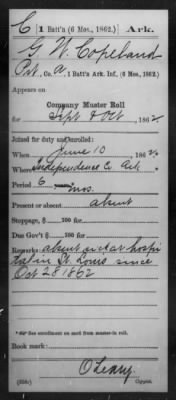 C | 1 Batt'n (6 Mos., 1862.) | Ark.
G. W. Copeland
Pvt, Co. A, 1 Batt'n Ark. Inf., (6 Mos., 1862.)
Appears on
Company Muster Roll
for Sept & Oct, 1862.
Joined for duty and enrolled:
When June 10, 1862
Where Independence Co Ark
Period 6 mos.
Present or absent absent
Stoppage, $ 100 for
Due Gov't $ 100 for
Remarks: absent sick at hospi
tal in St. Louis since
Oct 28 1862
* See enrollment on card from muster-in roll.
Book mark:
O'Leary
Copyist.